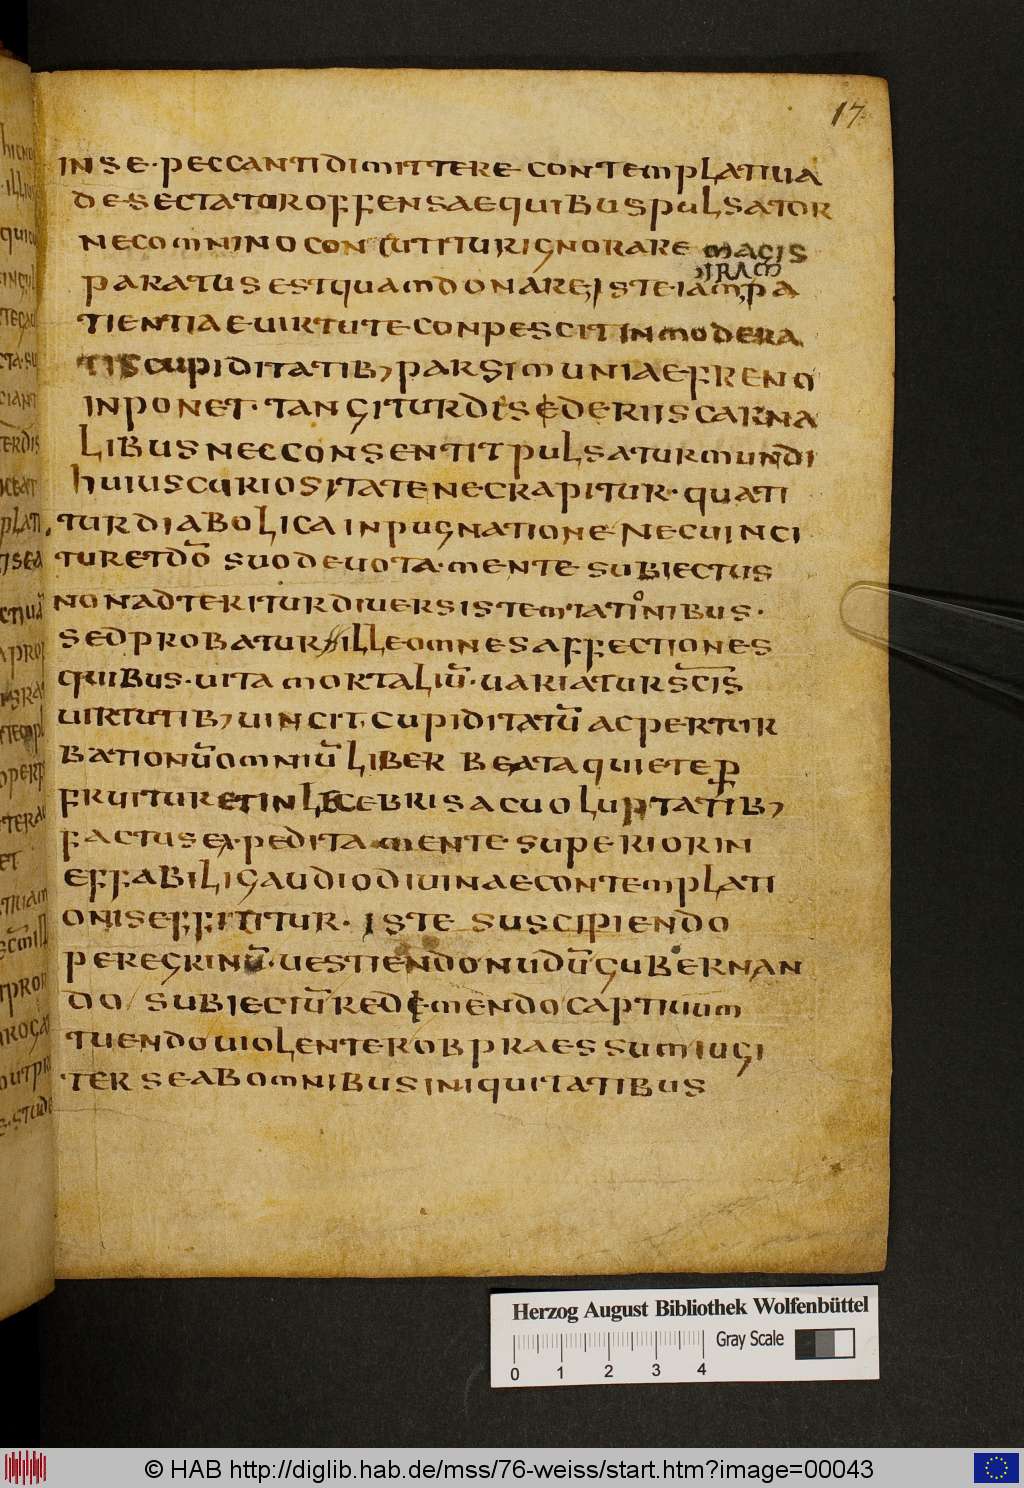 17
IN SE· PECCANTI DIMITTERE CONTEMPLATIUA
DESECTATOR OFFENSAE QUIBUS PULSATOR
NEC OMNINO CONCUTITUR IGNORARE MAGIS
IRAM
PARATUS EST QUAM DONARE; ISTE IAM PA
TIENTIAE UIRTUTE CONPESCIT INMODERA
TIS CUPIDITATIB, PARSIMUNIAE FRENO
INPONET· TANGITUR DESEDERIIS CARNA
LIBUS NEC CONSENTIT PULSATUR MUNDI
HUIUS CURIOSITATE NEC RAPITUR· QUATI
TUR DIABOLICA INPUGNATIONE NEC UINCI
TUR ET DŌ SUO DEUOTA· MENTE SUBIECTUS
NON ADTERITUR DIUERSIS TEMTATIONIBUS·
SED PROBATUR ILLE OMNES AFFECTIONES
QUIBUS· UITA MORTALIŪ· UARIATUR SC̄IS
UIRTUTIB, UINCIT, CUPIDITATŪ AC PERTUR
BATIONŪ OMNIŪ LIBER BEATA QUIETE P
FRUITUR ET INLECEBRIS AC UOLUPTATIB,
FACTUS EXPEDITA MENTE SUPERIOR IN
EFFABILI GAUDIO DIUINAE CONTEMPLATI
ONIS EFFICITUR· ISTE SUSCIPIENDO
PEREGRINŪ· UESTIENDO NUDŪ GUBERNAN
DO SUBIECTŪ REDEMENDO CAPTIUUM
TUENDO UIOLENTER OBPRAESSUM IUGI
TER SE AB OMNIBUS INIQUITATIBUS
Herzog August Bibliothek Wolfenbüttel
Gray Scale
0 1 2 3 4
© HAB http://diglib.hab.de/mss/76-weiss/start.htm?image=00043